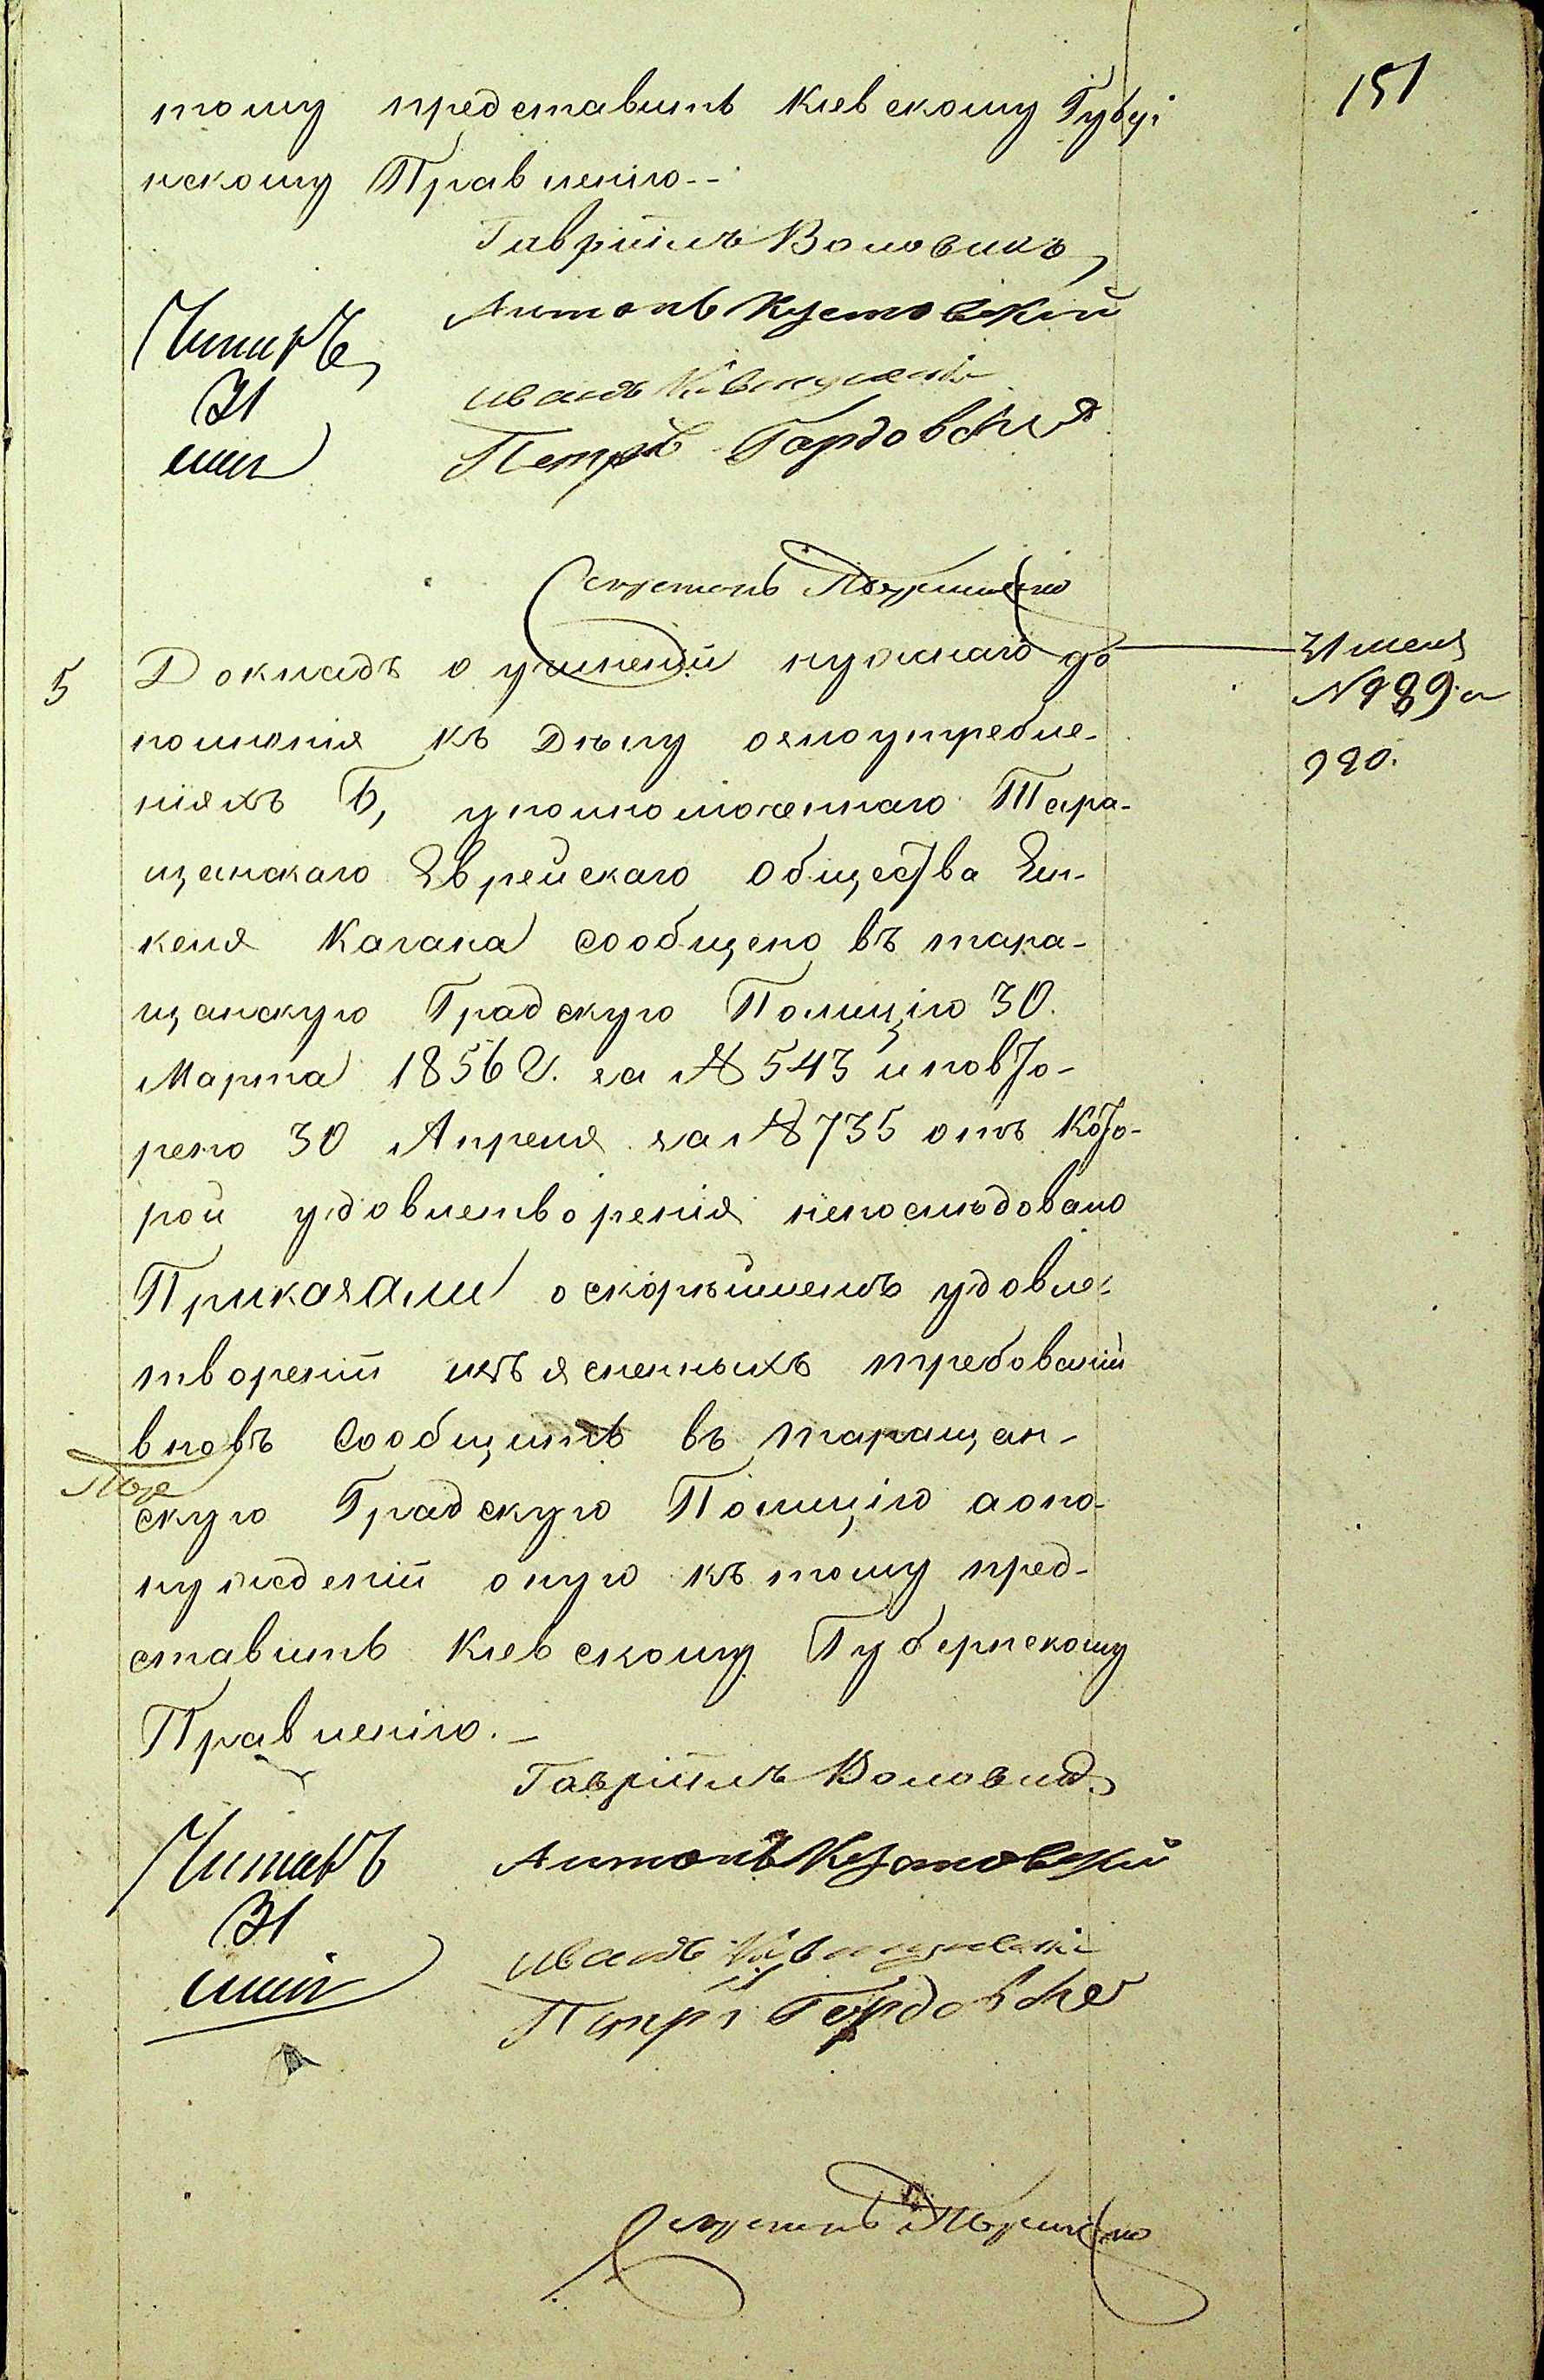 151
тому представить Кіевскому Губер
нскому Правленію--
Гавріилъ Воловикъ
Антонъ Кустовскій
Читалъ
31
мая
Иванъ
Петръ Гардовскій
5
Докладъ о учиненіи нужнаго до
31 мая
№ 989 и
990.
полненія къ Дѣлу о злоупотребле-
ніяхъ б, уполномоченнаго Тара-
щанскаго Еврейскаго Общества Ян-
келя Кагана сообщено въ тара-
щанскую Градскую Полицію 30.
Марта 1856 г. за № 543 и повто-
рено 30 Апреля за № 735 отъ Кото-
рой удовлетворенія непослѣдовало
Приказали о скорѣйшемъ удовле-
твореніи изъясненныхъ требованій
вновь Сообщить въ таращан-
скую Градскую Полицію а о по-
нужденіи оную къ тому пред-
ставить Кіевскому Губернскому
Правленію.-
Гавріилъ Воловикъ
Читалъ
Антонъ Кустовскій
31
мая
Иванъ
Петръ Гардовскій